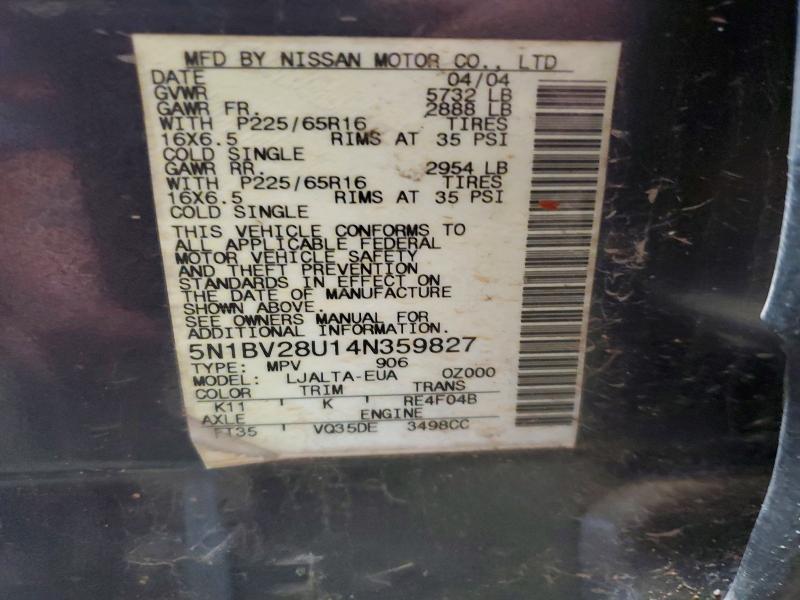 MFD BY NISSAN MOTOR CO., LTD
DATE 04/04
GVWR 5732 LB
GAWR FR. 2888 LB
WITH P225/65R16 TIRES
16X6.5 RIMS AT 35 PSI
COLD SINGLE
GAWR RR. 2954 LB
WITH P225/65R16 TIRES
16X6.5 RIMS AT 35 PSI
COLD SINGLE
THIS VEHICLE CONFORMS TO
ALL APPLICABLE FEDERAL
MOTOR VEHICLE SAFETY
AND THEFT PREVENTION
STANDARDS IN EFFECT ON
THE DATE OF MANUFACTURE
SHOWN ABOVE.
SEE OWNERS MANUAL FOR
ADDITIONAL INFORMATION.
5N1BV28U14N359827
TYPE: MPV 906
MODEL: LJALTA-EUA 0Z000
COLOR TRIM TRANS
K11 K RE4F04B
AXLE ENGINE
FT35 VQ35DE 3498CC